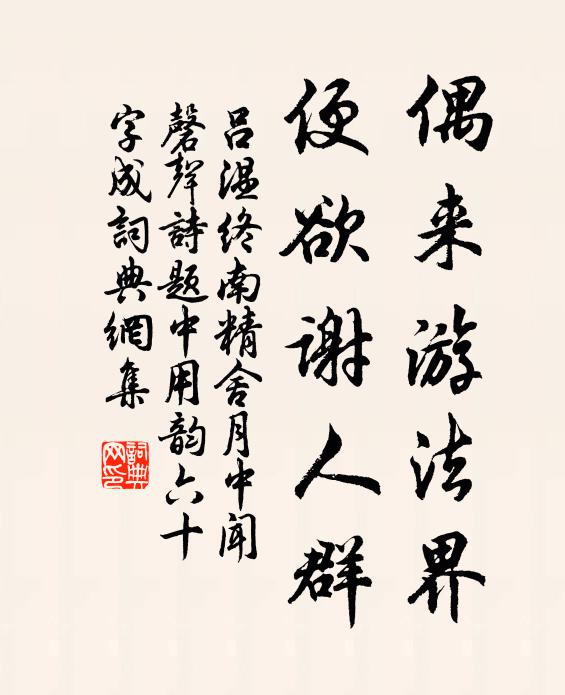 偶来游法界
便欲谢人群
吕温终南精舍月中闻
磬聲詩题中用韵六十
字成詞典網集
詞典网印